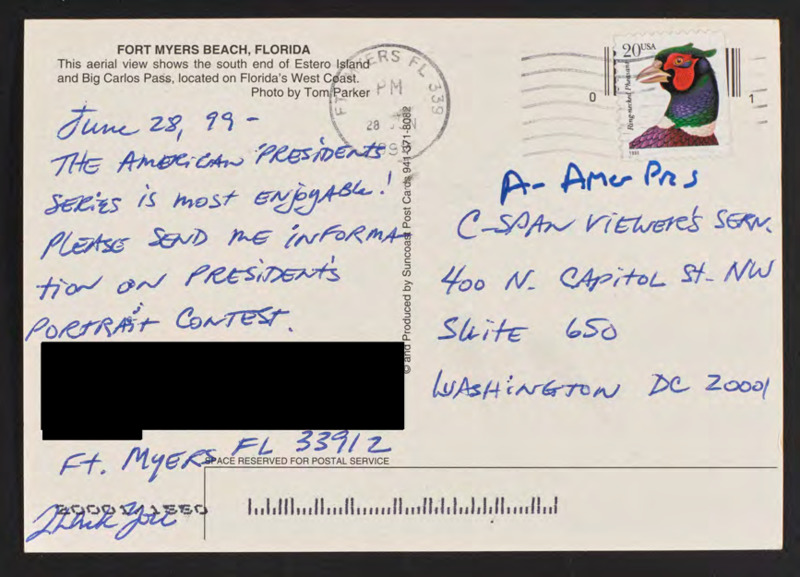 FORT MYERS BEACH, FLORIDA
This aerial view shows the south end of Estero Island
and Big Carlos Pass, located on Florida's West Coast.
Photo by Tom Parker
June 28, 99 -
THE AMERICAN PRESIDENTS
SERIES is most ENJOYABLE!
PLEASE SEND ME INFORMA-
tion on PRESIDENTS
PORTRAIT CONTEST.
Ft. MYERS FL 33912
Thank You
© and Produced by Suncoast Post Cards 941-371-8082
FT MYERS FL 339
PM
28
20USA
Ring-necked Pheasant
0
1
A- AMER PRS
C-SPAN VIEWER'S SERV.
400 N. CAPITOL St- NW
SUITE 650
WASHINGTON DC 20001
SPACE RESERVED FOR POSTAL SERVICE